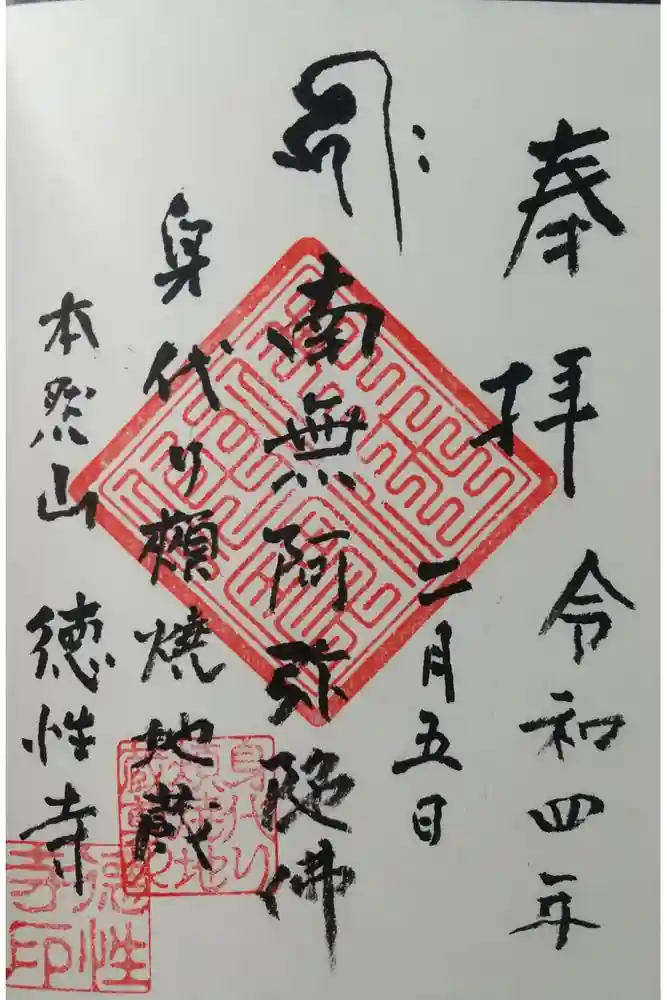 奉拝
令和四年
二月五日
南無阿弥陀佛
身代り頬焼地蔵
本然山
徳性寺
徳性寺印